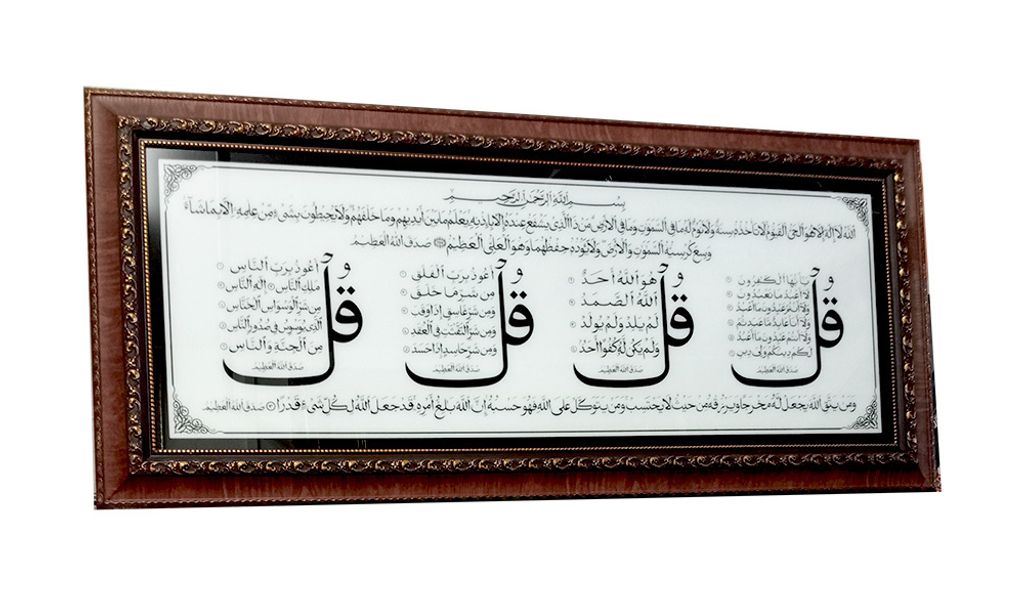 بِسْمِ اللَّهِ الرَّحْمَنِ الرَّحِيمِ
اللَّهُ لَا إِلَهَ إِلَّا هُوَ الْحَيُّ الْقَيُّومُ لَا تَأْخُذُهُ سِنَةٌ وَلَا نَوْمٌ لَهُ مَا فِي السَّمَوَتِ وَمَا فِي الْأَرْضِ مَنْ ذَا الَّذِي يَشْفَعُ عِنْدَهُ إِلَّا بِإِذْنِهِ يَعْلَمُ مَا بَيْنَ أَيْدِيهِمْ وَمَا خَلْفَهُمْ وَلَا يُحِيطُونَ بِشَيْءٍ مِنْ عِلْمِهِ إِلَّا بِمَا شَاءَ
وَسِعَ كُرْسِيُّهُ السَّمَوَتِ وَالْأَرْضَ وَلَا يَئُودُهُ حِفْظُهُمَا وَهُوَ الْعَلِيُّ الْعَظِيمُ صدق الله العظيم
قُلْ
يَأَيُّهَا الْكَفِرُونَ ١
لَا أَعْبُدُ مَا تَعْبُدُونَ ٢
وَلَا أَنْتُمْ عَبِدُونَ مَا أَعْبُدُ ٣
وَلَا أَنَا عَابِدٌ مَا عَبَدْتُمْ ٤
وَلَا أَنْتُمْ عَبِدُونَ مَا أَعْبُدُ ٥
لَكُمْ دِينُكُمْ وَلِيَ دِينِ ٦
صدق الله العظيم
قُلْ
هُوَ اللَّهُ أَحَدٌ ١
اللَّهُ الصَّمَدُ ٢
لَمْ يَلِدْ وَلَمْ يُولَدْ ٣
وَلَمْ يَكُنْ لَهُ كُفُوًا أَحَدٌ ٤
صدق الله العظيم
قُلْ
أَعُوذُ بِرَبِّ الْفَلَقِ ١
مِنْ شَرِّ مَا خَلَقَ ٢
وَمِنْ شَرِّ غَاسِقٍ إِذَا وَقَبَ ٣
وَمِنْ شَرِّ النَّفَّثَتِ فِي الْعُقَدِ ٤
وَمِنْ شَرِّ حَاسِدٍ إِذَا حَسَدَ ٥
صدق الله العظيم
قُلْ
أَعُوذُ بِرَبِّ النَّاسِ ١
مَلِكِ النَّاسِ ٢ إِلَهِ النَّاسِ ٣
مِنْ شَرِّ الْوَسْوَاسِ الْخَنَّاسِ ٤
الَّذِي يُوَسْوِسُ فِي صُدُورِ النَّاسِ ٥
مِنَ الْجِنَّةِ وَالنَّاسِ ٦
صدق الله العظيم
وَمَنْ يَتَّقِ اللَّهَ يَجْعَلْ لَهُ مَخْرَجًا وَيَرْزُقْهُ مِنْ حَيْثُ لَا يَحْتَسِبُ وَمَنْ يَتَوَكَّلْ عَلَى اللَّهِ فَهُوَ حَسْبُهُ إِنَّ اللَّهَ بَلِغُ أَمْرِهِ قَدْ جَعَلَ اللَّهُ لِكُلِّ شَيْءٍ قَدْرًا صدق الله العظيم